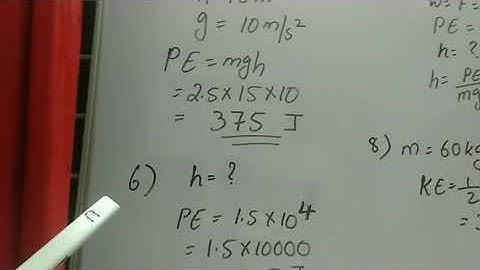 g = 10 m/s²
PE = mgh
= 2.5 × 15 × 10
= 375 J
6) h = ?
PE = 1.5 × 10⁴
= 1.5 × 10000
PE =
h = ?
h = PE/mg
8) m = 60 kg
KE = 1/2